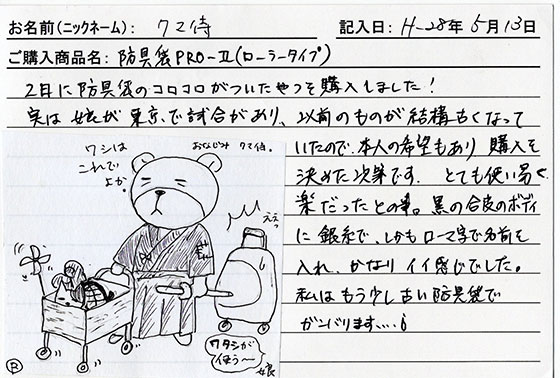 お名前(ニックネーム): クマ侍
記入日: H-28年5月13日
ご購入商品名: 防具袋PRO-Ⅱ(ローラータイプ)
2月に防具袋のコロコロがついたやつを購入しました!
実は娘が東京で試合があり、以前のものが結構古くなって
いたので、本人の希望もあり購入を
決めた次第です。とても使い易く
楽だったとの事。黒の合皮のボディ
に銀糸で、しかもローマ字で名前を
入れ、かなりイイ感じでした。
私はもう少し古い防具袋で
がンバリます…。
ワシは
これで
よか。
おなじみ クマ侍。
ええっ
ワタシが
使う〜
娘
R